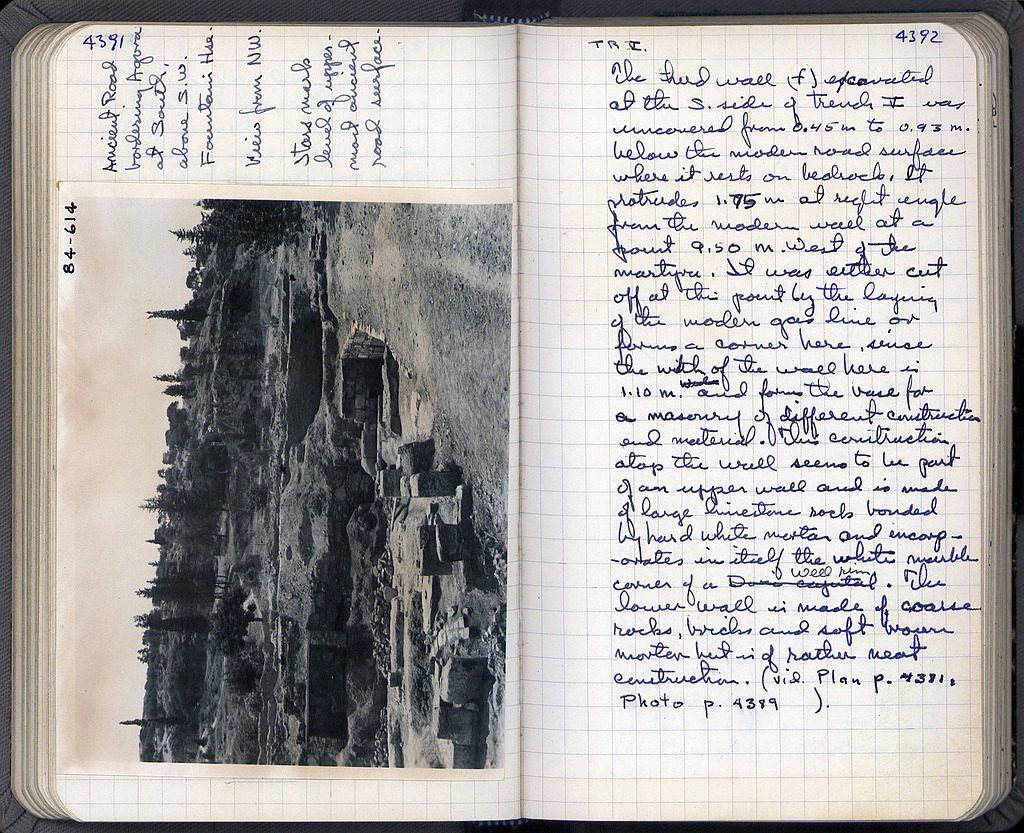 4391
Ancient Road
bordering Agora
at South,
above S.W.
Fountain Hse.
View from NW.
Stars mark
level of upper-
most ancient
road surface.
84-614
4392
TR I.
The third wall (f) excavated
at the S. side of trench I was
uncovered from 0.45 m to 0.93 m.
below the modern road surface
where it rests on bedrock. It
protrudes 1.75 m at right angle
from the modern wall at a
point 9.50 m. West of the
martyra. It was either cut
off at this point by the laying
of the modern gas line or
forms a corner here, since
the width of the wall here is
1.10 m. and forms the base for
a masonry of different construction
and material. This construction
atop the wall seems to be part
of an upper wall and is made
of large limestone rocks bonded
by hard white mortar and incorp-
-orates in itself the white marble
corner of a well rim. The
lower wall is made of coarse
rocks, bricks and soft brown
mortar but is of rather neat
construction. (vid. Plan p. 4381,
Photo p. 4389 ).